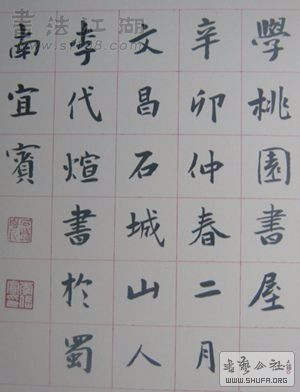 學桃園書屋
辛卯仲春二月
文昌石城山人
李代煊書於蜀
南宜賓
書法江湖
书艺公社
WWW.SHUFA.ORG